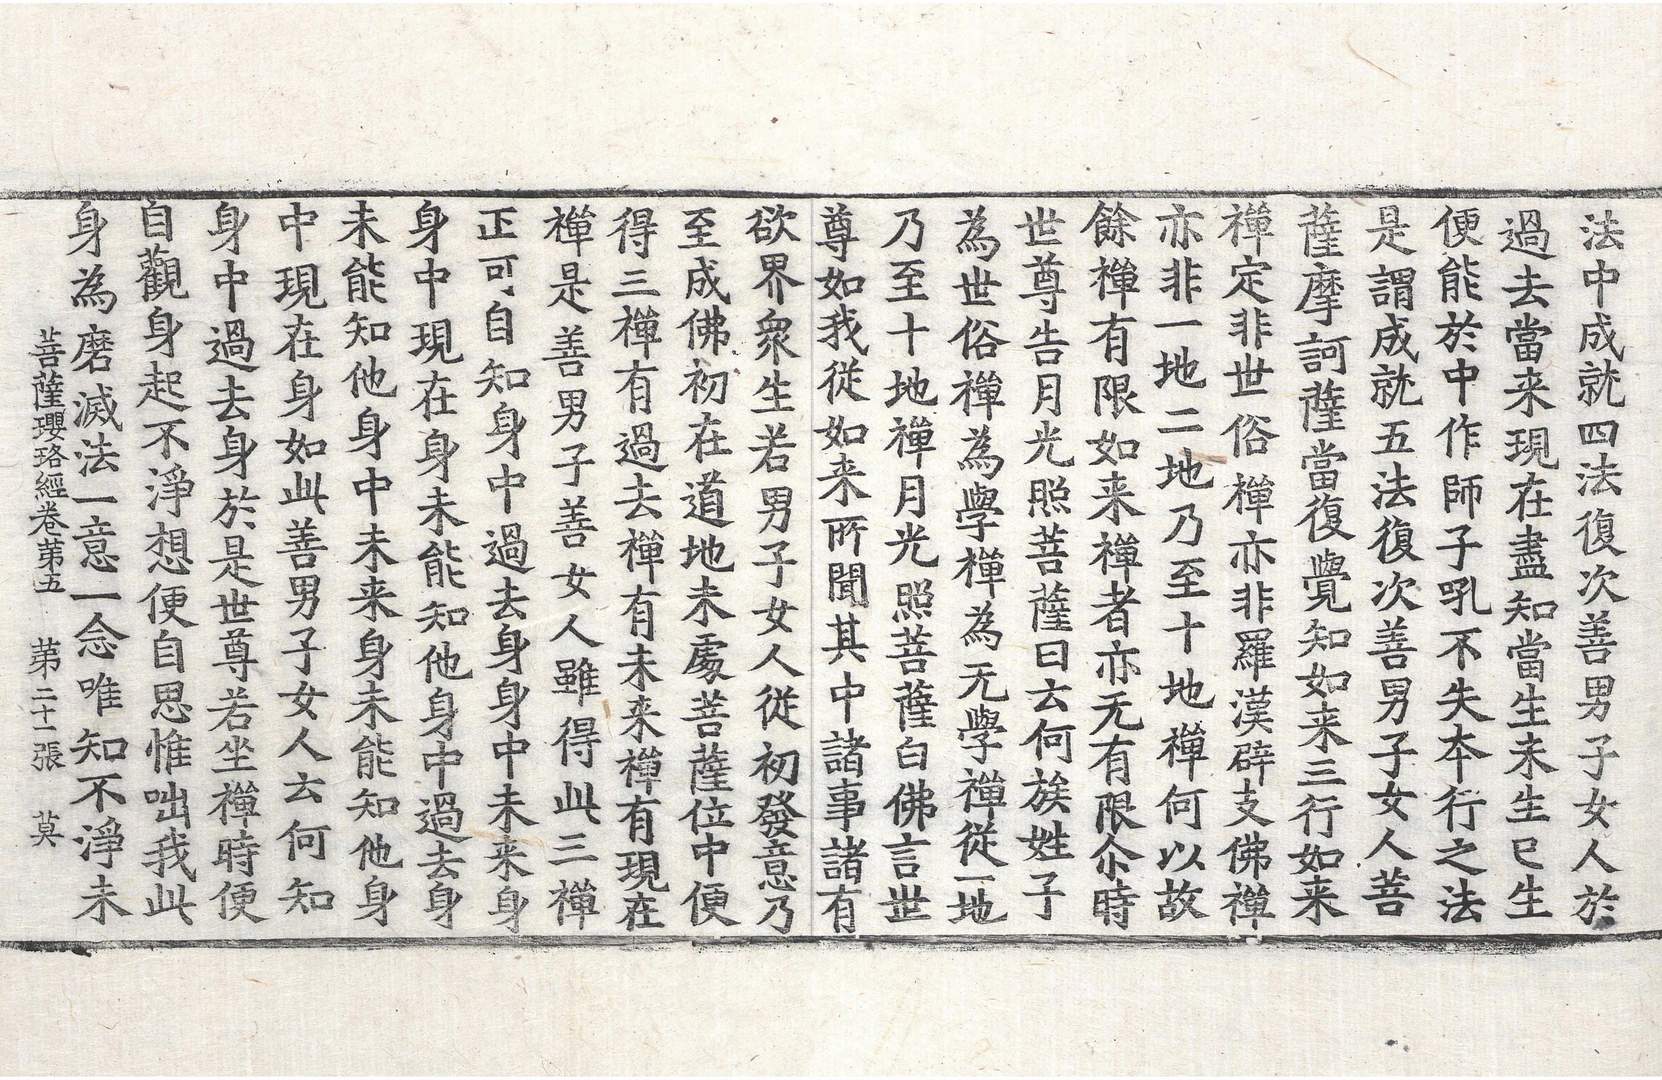 法中成就四法復次善男子女人於
過去當来現在盡知當生未生已生
便能於中作師子吼不失本行之法
是謂成就五法復次善男子女人菩
薩摩訶薩當復覺知如来三行如来
禪定非世俗禪亦非羅漢辟支佛禪
亦非一地二地乃至十地禪何以故
餘禪有限如来禪者亦无有限尒時
世尊告月光照菩薩曰云何族姓子
為世俗禪為學禪為无學禪從一地
乃至十地禪月光照菩薩白佛言世
尊如我從如来所聞其中諸事諸有
欲界衆生若男子女人從初發意乃
至成佛初在道地未處菩薩位中便
得三禪有過去禪有未来禪有現在
禪是善男子善女人雖得此三禪
正可自知身中過去身身中未来身
身中現在身未能知他身中過去身
未能知他身中未来身未能知他身
中現在身如此善男子女人云何知
身中過去身於是世尊若坐禪時便
自觀身起不淨想便自思惟咄我此
身為磨滅法一意一念唯知不淨未
菩薩瓔珞經卷第五 第二十一張 莫